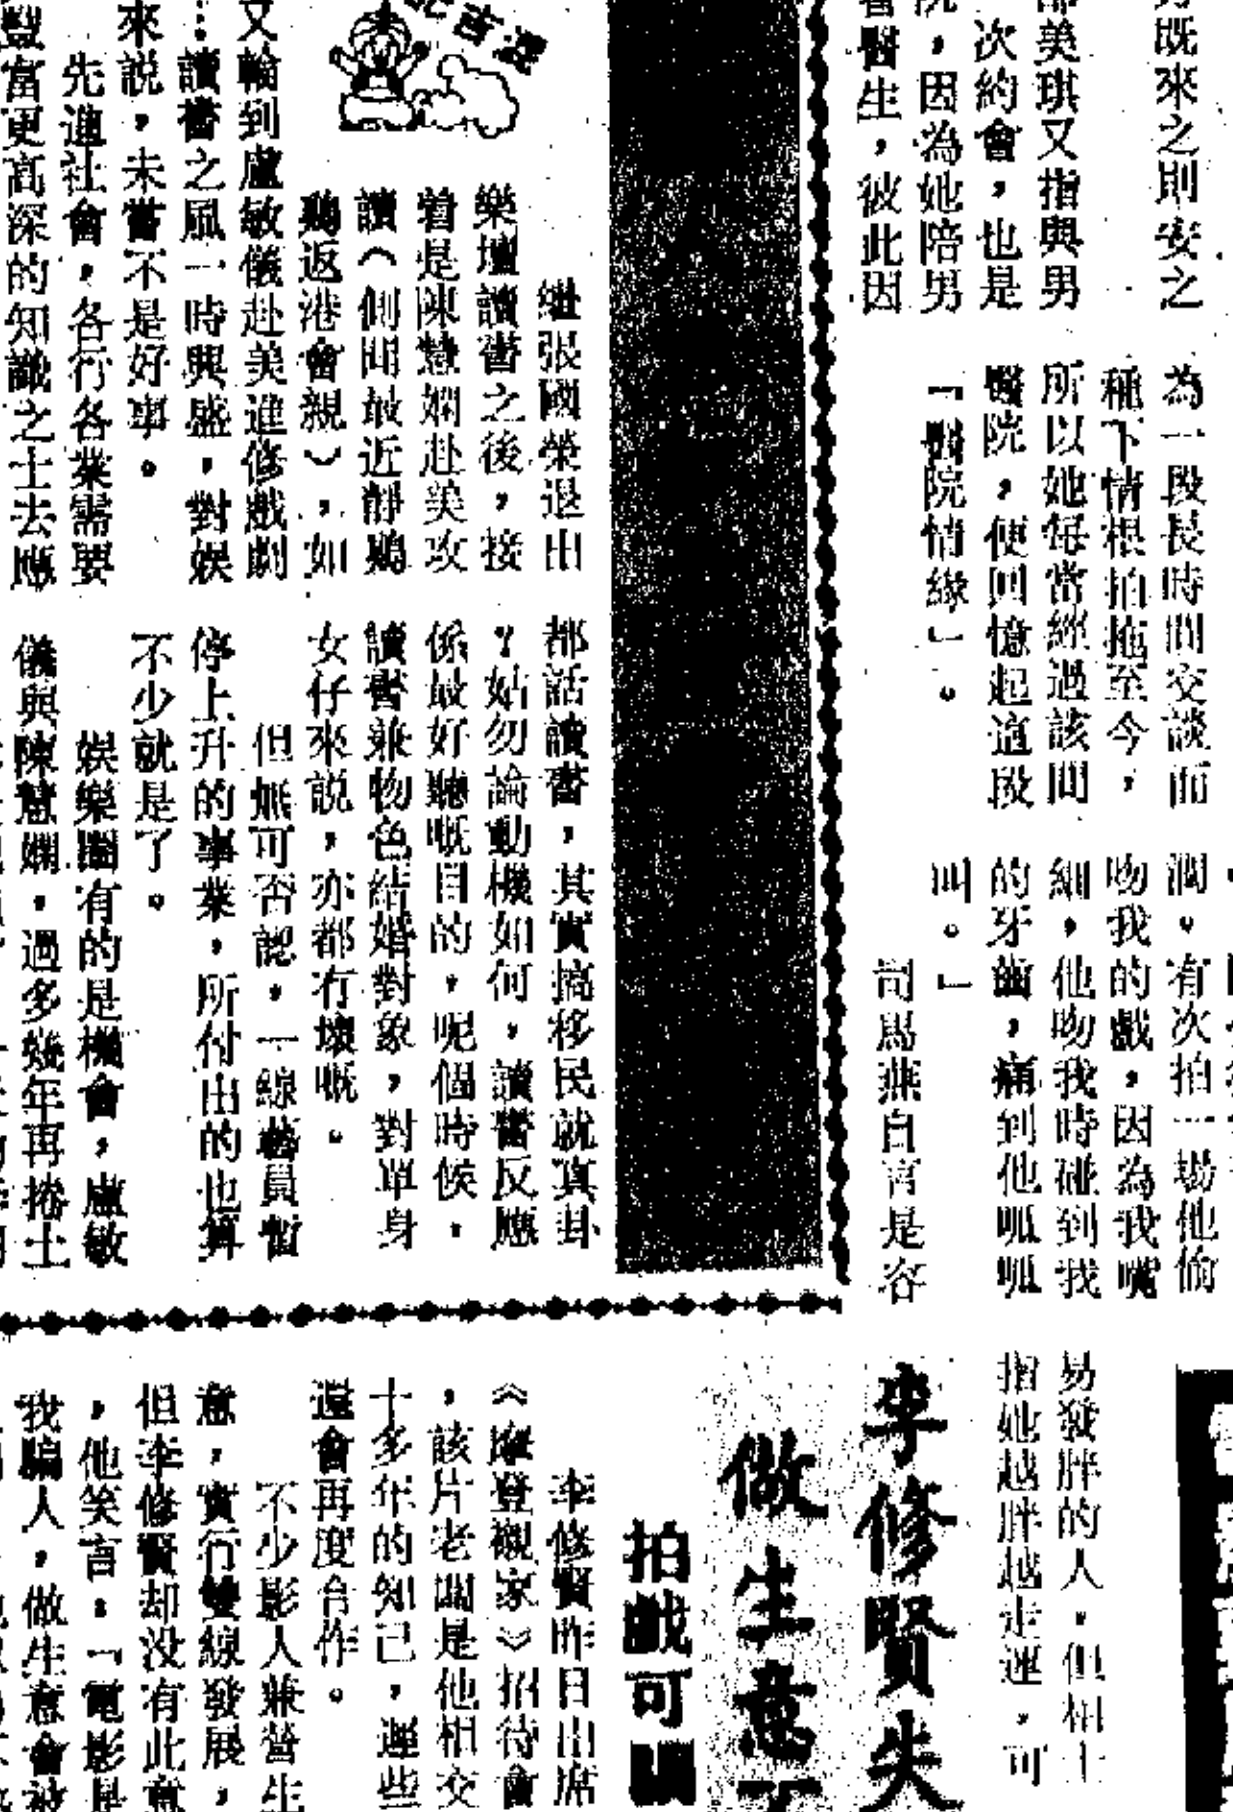 好既來之則安之
美琪又指與男
次約會，也是
院，因為她陪男
醫生，彼此因
為一段長時間交談而
種下情根拍拖至今，
所以她每當經過該間
醫院，便回憶起這段
「醫院情緣」。
潤。有次拍一場他偷
吻我的戲，因為我嘴
細，他吻我時碰到我
的牙齒，痛到他呱呱
叫。」
司馬燕自言是容
易發胖的人，但相士
指她越胖越走運，可
繼張國榮退出
樂壇讀書之後，接
着是陳慧嫻赴美攻
讀（側聞最近靜鷄
鷄返港會親），如
又輪到盧敏儀赴美進修戲劇
…讀書之風一時興盛，對娛
來説，未嘗不是好事。
先進社會，各行各業需要
豐富更高深的知識之士去應
都話讀書，其實搞移民就真卦
？姑勿論動機如何，讀書反應
係最好聽嘅目的，呢個時候，
讀書兼物色結婚對象，對單身
女仔來説，亦都冇壞嘅。
但無可否認，一線藝員暫
停上升的事業，所付出的也算
不少就是了。
娛樂圈有的是機會，盧敏
儀與陳慧嫻，過多幾年再捲土
李修賢失
做生意
拍戲可
李修賢昨日出席
《摩登襯家》招待會
，該片老闆是他相交
十多年的知己，遲些
還會再度合作。
不少影人兼營生
意，實行雙線發展，
但李修賢却没有此意
，他笑言：「電影是
我騙人，做生意會被